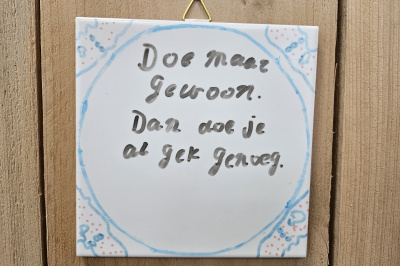 Doe maar
gewoon.
Dan doe je
al gek genoeg.